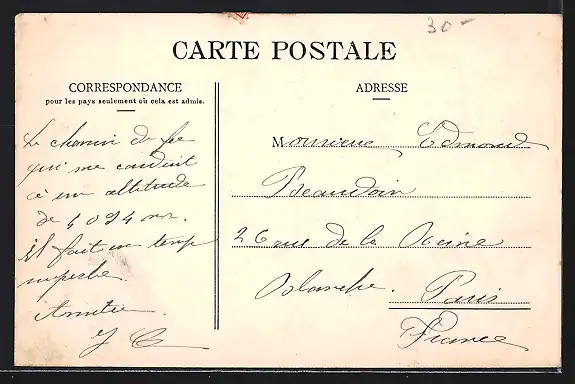 30-
CARTE POSTALE
CORRESPONDANCE
pour les pays seulement où cela est admis.
ADRESSE
Le chemin de fer
qui me conduit
à une altitude
de 4094 m.
il fait un temps
superbe.
Amitiés
Monsieur Edmond
Beaudoin
26 rue de la Reine
Blanche. Paris
France